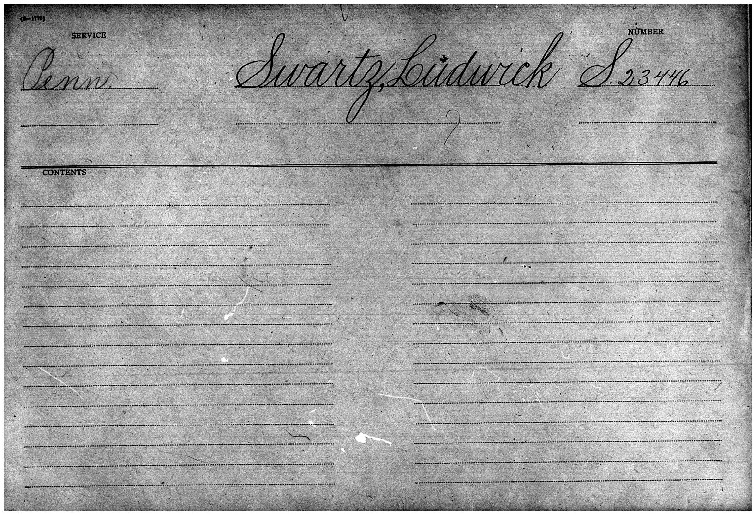 SERVICE
NUMBER
Penn Swartz, Ludwick S 23446
CONTENTS